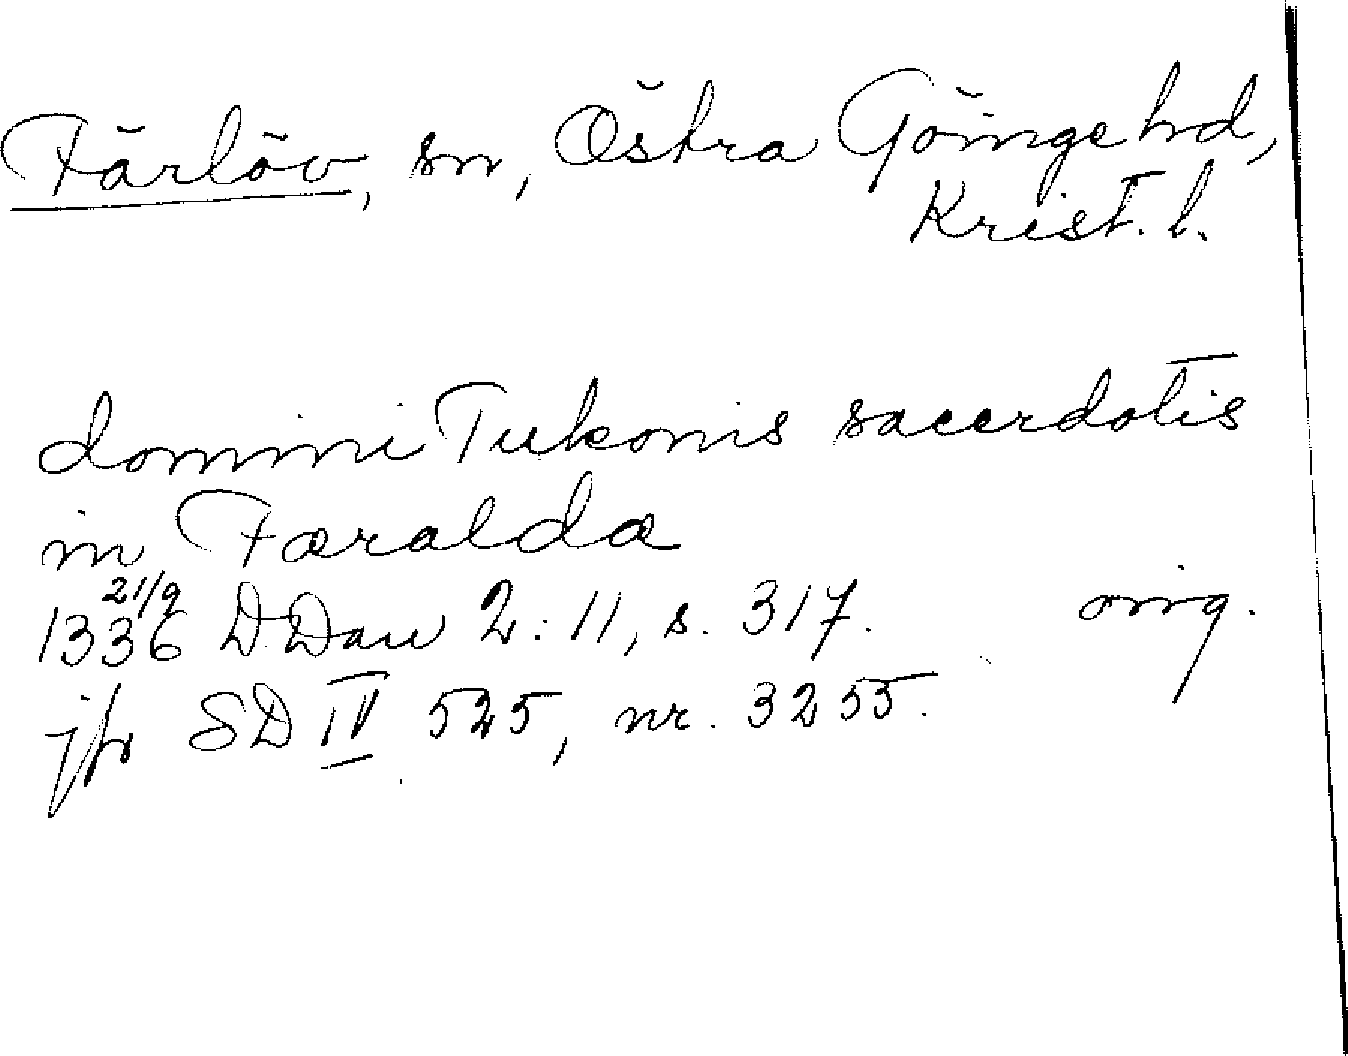 Färlöv, sn, Östra Göinge hd,
Krist. l.
domini Tukonis sacerdotis
in Færaldæ
21/9
1336 D Dan 2:11, s. 317. orig.
jfr SD IV 525, nr. 3255.